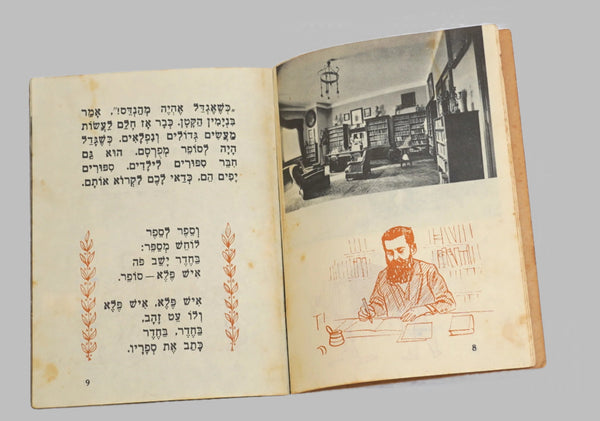 8
„כְּשֶׁאֶגְדַּל אֶהְיֶה מְהַנְדֵּס!״, אָמַר
בִּנְיָמִין הַקָּטָן. כְּבָר אָז חָלַם לַעֲשׂוֹת
מַעֲשִׂים גְּדוֹלִים וְנִפְלָאִים. כְּשֶׁגָּדַל
הָיָה לְסוֹפֵר מְפֻרְסָם. הוּא גַם
חִבֵּר סִפּוּרִים לִילָדִים. סִפּוּרִים
יָפִים הֵם, כְּדַאי לָכֶם לִקְרוֹא אוֹתָם.
וְסֵפֶר לְסֵפֶר
לוֹחֵשׁ מִסֵּפֶר:
בַּחֶדֶר יָשַׁב פֹּה
אִישׁ פֶּלֶא — סוֹפֵר.
אִישׁ פֶּלֶא, אִישׁ פֶּלֶא
וְלוֹ עֵט זָהָב,
בַּחֶדֶר, בַּחֶדֶר
כָּתַב אֶת סְפָרָיו.
9